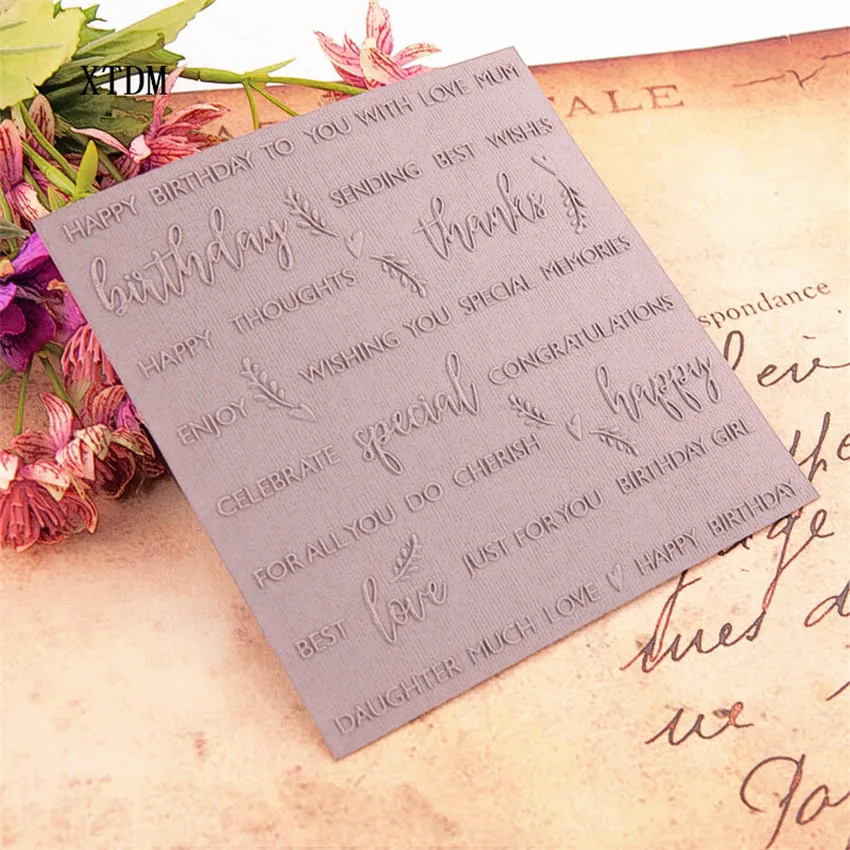 XTDM
HAPPY BIRTHDAY TO YOU WITH LOVE MUM
birthday SENDING BEST WISHES
HAPPY THOUGHTS thanks
ENJOY WISHING YOU SPECIAL MEMORIES
CELEBRATE special CONGRATULATIONS
FOR ALL YOU DO CHERISH happy
BEST love JUST FOR YOU BIRTHDAY GIRL
DAUGHTER MUCH LOVE HAPPY BIRTHDAY
ALE
spondance